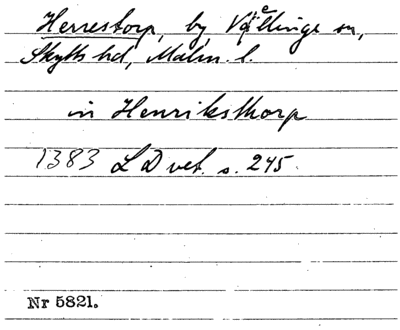 Herrestorp, by, Vellinge sn,
Skytts hd, Malm. l.
in Henriksthorp
1383 LD vet. s. 245.
Nr 5821.